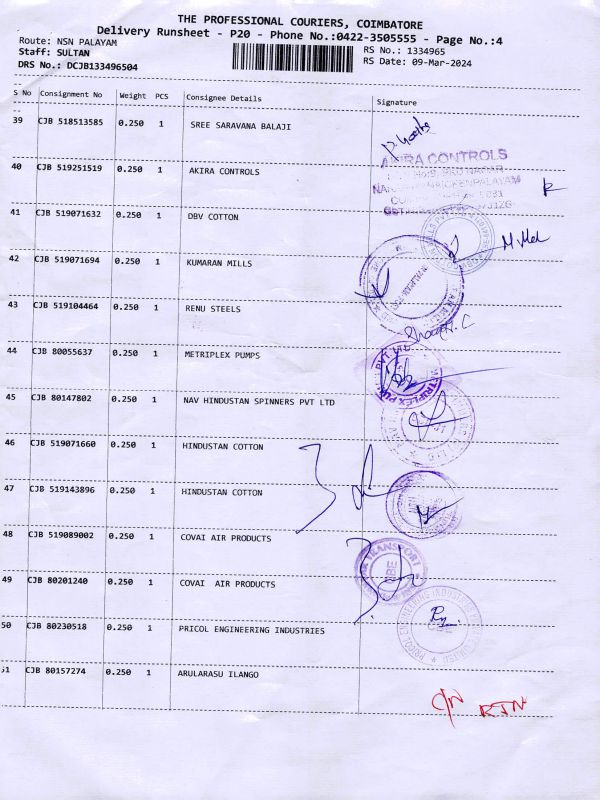 THE PROFESSIONAL COURIERS, COIMBATORE
Delivery Runsheet - P20 - Phone No.:0422-3505555 - Page No.:4
Route: NSN PALAYAM RS No.: 1334965
Staff: SULTAN RS Date: 09-Mar-2024
DRS No.: DCJB133496504
S No Consignment No Weight PCS Consignee Details Signature
39 CJB 518513585 0.250 1 SREE SARAVANA BALAJI
40 CJB 519251519 0.250 1 AKIRA CONTROLS
AKIRA CONTROLS
41 CJB 519071632 0.250 1 DBV COTTON
42 CJB 519071694 0.250 1 KUMARAN MILLS
43 CJB 519104464 0.250 1 RENU STEELS
44 CJB 80055637 0.250 1 METRIPLEX PUMPS
METRIPLEX PUMPS PVT LTD
45 CJB 80147802 0.250 1 NAV HINDUSTAN SPINNERS PVT LTD
46 CJB 519071660 0.250 1 HINDUSTAN COTTON
47 CJB 519143896 0.250 1 HINDUSTAN COTTON
48 CJB 519089002 0.250 1 COVAI AIR PRODUCTS
TRANSPORT
CBE
49 CJB 80201240 0.250 1 COVAI AIR PRODUCTS
50 CJB 80230518 0.250 1 PRICOL ENGINEERING INDUSTRIES
PRICOL ENGINEERING INDUSTRIES
CBE
51 CJB 80157274 0.250 1 ARULARASU ILANGO
RTN